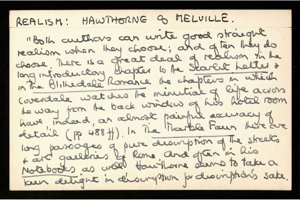 REALISM: HAWTHORNE & MELVILLE.
"Both authors can write good straight
realism when they choose; and often they do
choose. There is a great deal of realism in the
long introductory chapter to the Scarlet Letter &
in the Blithedale Romance the chapters in which
Coverdale watches the minutiae of life across
the way from the back window of his hotel room
have indeed, an almost painful accuracy of
detail (pp 488 ff). In The Marble Faun there are
long passages of pure description of the streets
& art galleries of Rome and often in his
Notebooks as well Hawthorne seems to take a
keen delight in description for description's sake.